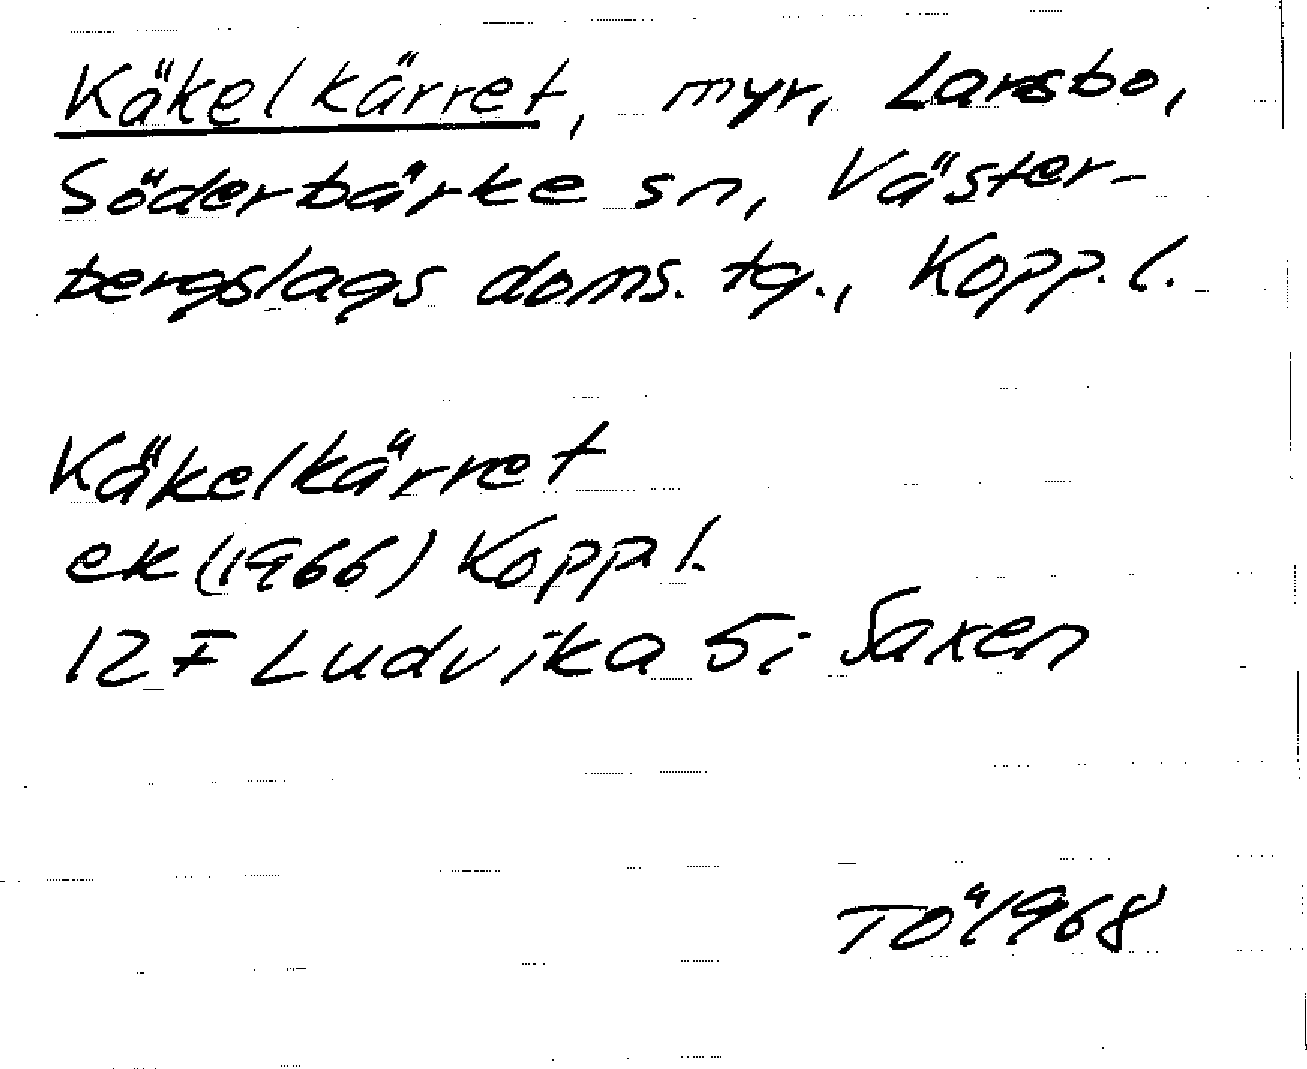 Käkelkärret, myr, Larsbo,
Söderbärke sn, Väster-
bergslags doms. tg., Kopp. l.
Käkelkärret
ek (1966) Kopp l.
12 F Ludvika 5i Saxen
TÖ 1968